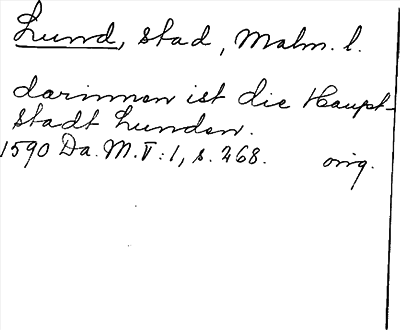 Lund, stad, Malm. l.
darinnen ist die Haupt-
stadt Lunden.
1590 Da. M. V:1, s. 268. orig.